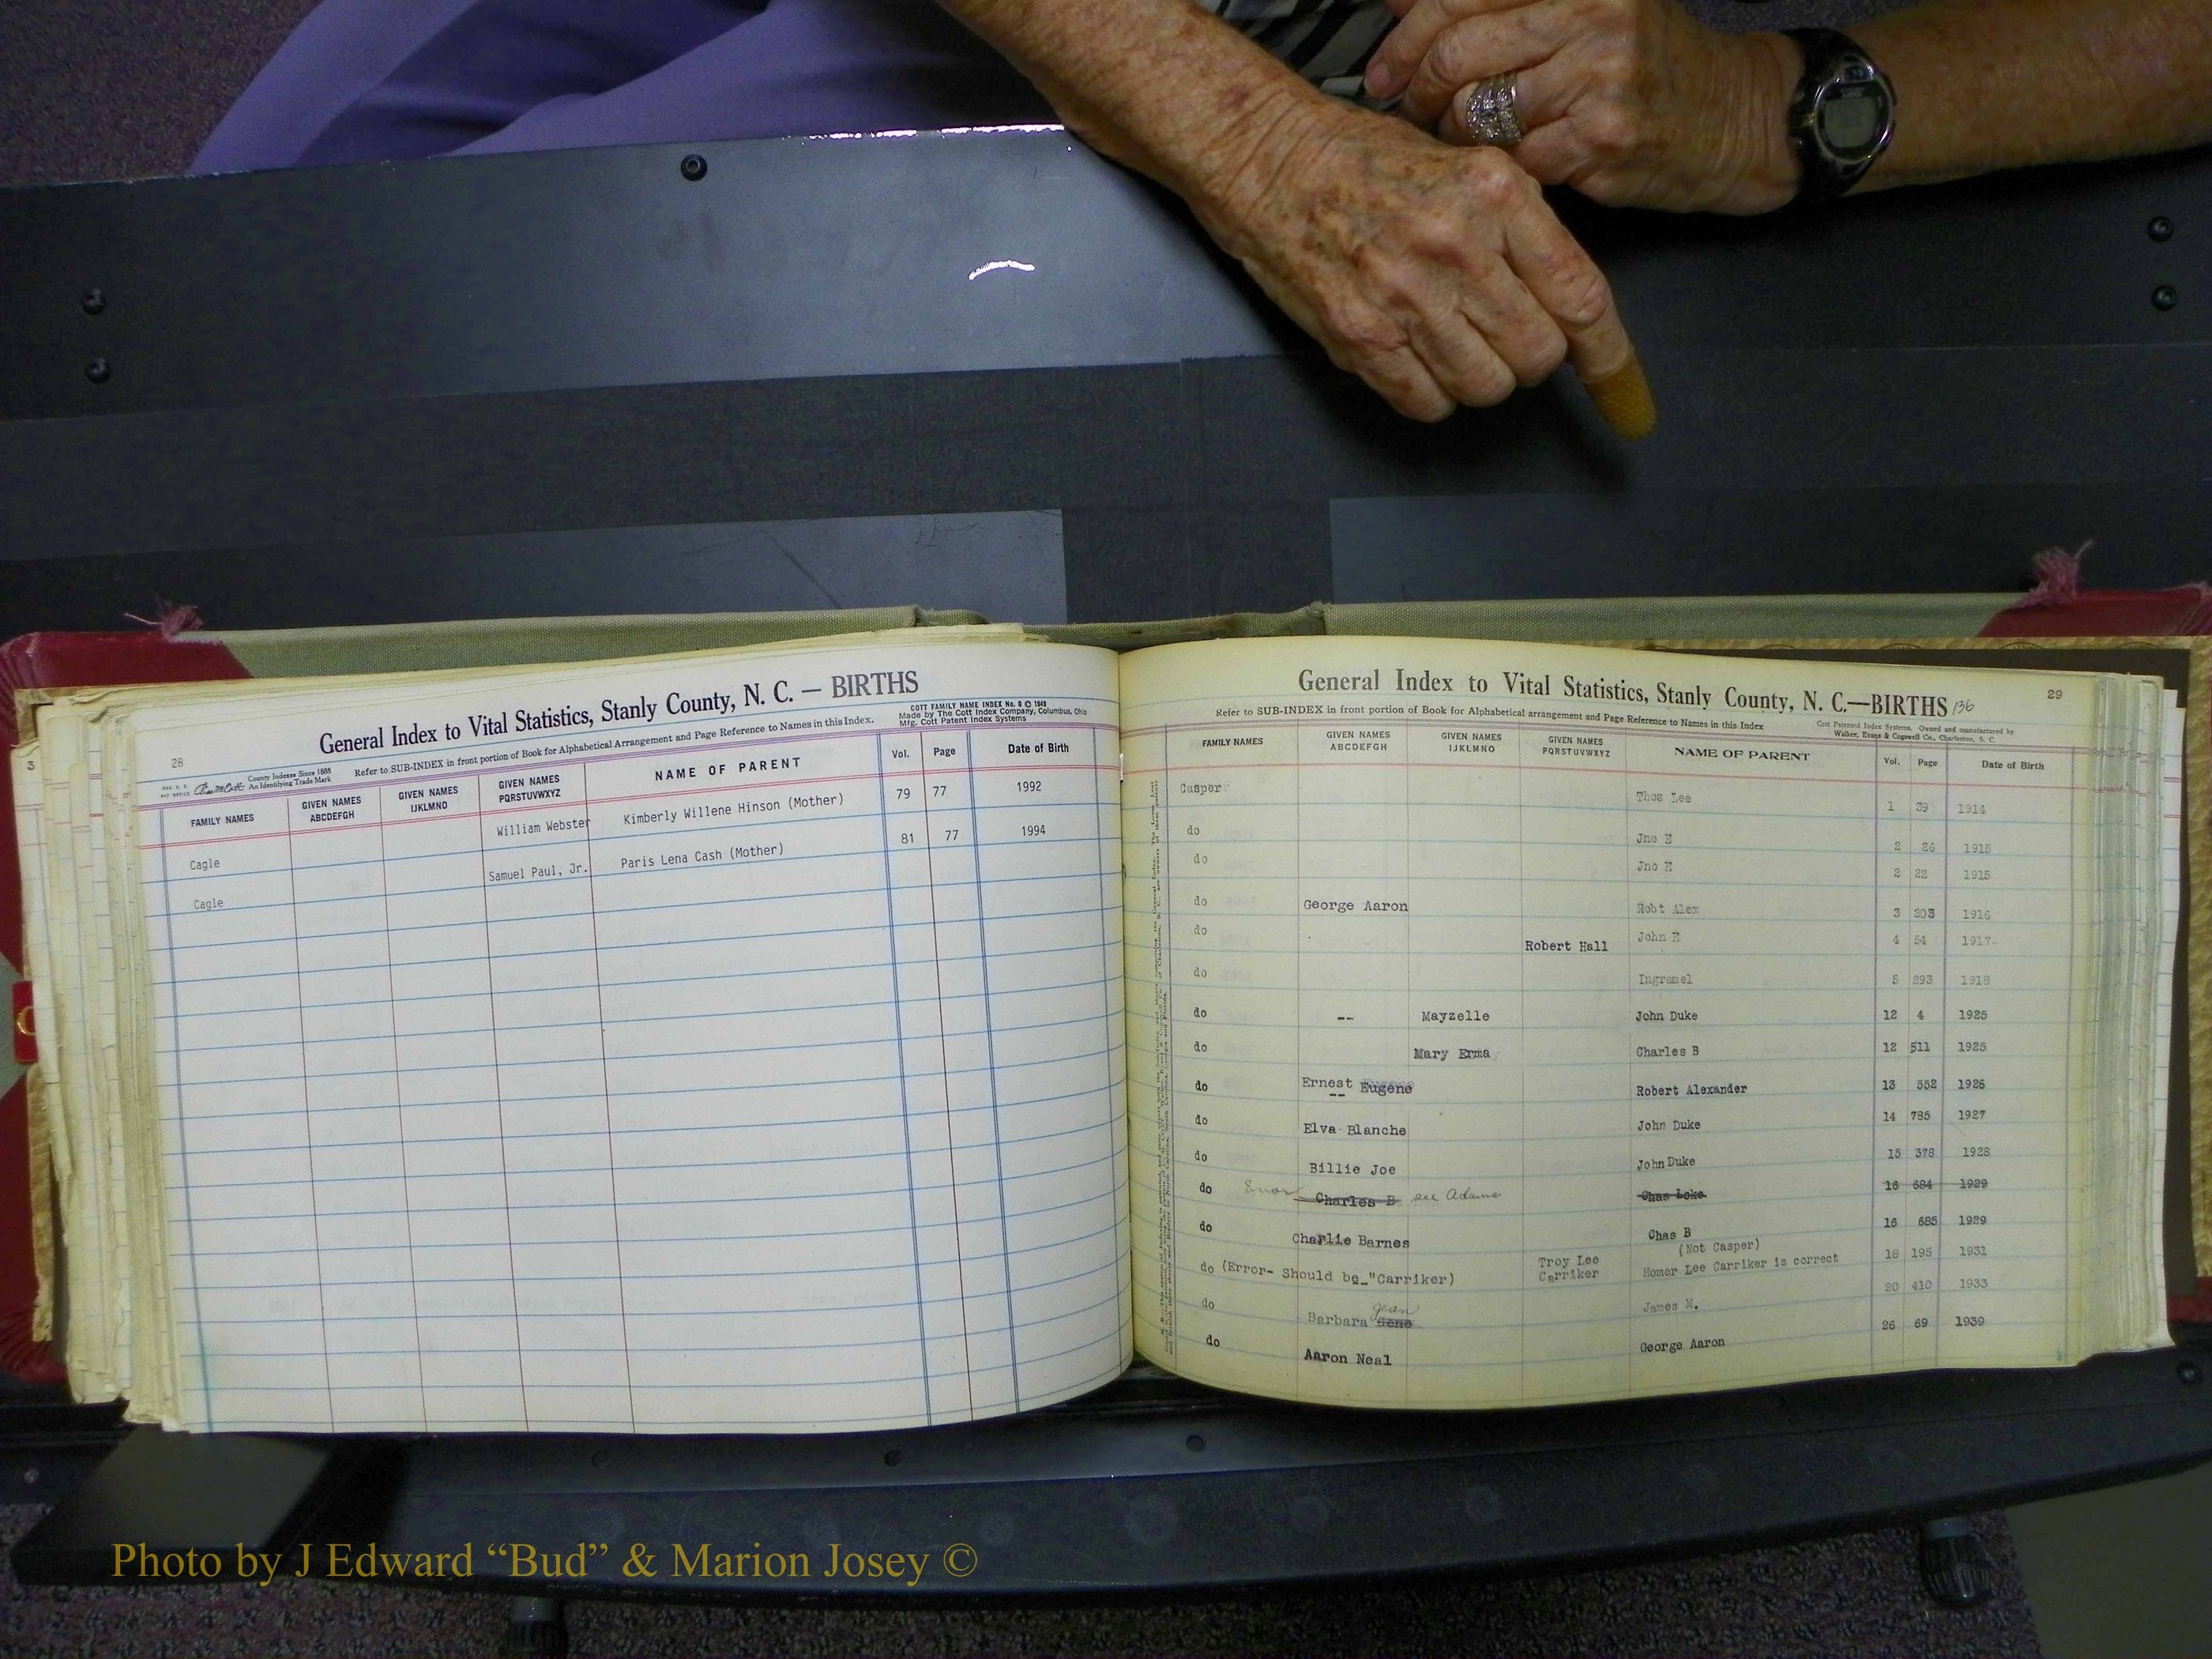 General Index to Vital Statistics, Stanly County, N. C. — BIRTHS
28
County Indexes Since 1888
An Identifying Trade Mark
Refer to SUB-INDEX in front portion of Book for Alphabetical Arrangement and Page Reference to Names in this Index.
COTT FAMILY NAME INDEX No. 0 © 1949
Made by The Cott Index Company, Columbus, Ohio
Mfg. Cott Patent Index Systems
FAMILY NAMES GIVEN NAMES ABCDEFGH GIVEN NAMES IJKLMNO GIVEN NAMES PQRSTUVWXYZ NAME OF PARENT Vol. Page Date of Birth
Cagle William Webster Kimberly Willene Hinson (Mother) 79 77 1992
Cagle Samuel Paul, Jr. Paris Lena Cash (Mother) 81 77 1994
General Index to Vital Statistics, Stanly County, N. C.—BIRTHS 136
29
Refer to SUB-INDEX in front portion of Book for Alphabetical arrangement and Page Reference to Names in this Index
Cott Patented Index Systems, Owned and manufactured by
Walker, Evans & Cogswell Co., Charleston, S. C.
FAMILY NAMES GIVEN NAMES ABCDEFGH GIVEN NAMES IJKLMNO GIVEN NAMES PQRSTUVWXYZ NAME OF PARENT Vol. Page Date of Birth
Casper Thos Lee 1 39 1914
do Jno E 2 26 1915
do Jno E 2 22 1915
do George Aaron Robt Alex 3 203 1916
do Robert Hall John E 4 54 1917
do Ingramel 5 293 1918
do -- Mayzelle John Duke 12 4 1925
do Mary Erma Charles B 12 511 1925
do Ernest Eugene -- Robert Alexander 13 552 1926
do Elva Blanche John Duke 14 785 1927
do Billie Joe John Duke 15 378 1928
do Error Charles B see Adams Chas Loke 16 684 1929
do Charlie Barnes Chas B 16 685 1929
(Not Casper)
do (Error- Should be "Carriker) Troy Lee Carriker Homer Lee Carriker is correct 18 195 1931
do Barbara Gene Jean James M. 20 410 1933
do Aaron Neal George Aaron 26 69 1939
Photo by J Edward “Bud” & Marion Josey ©